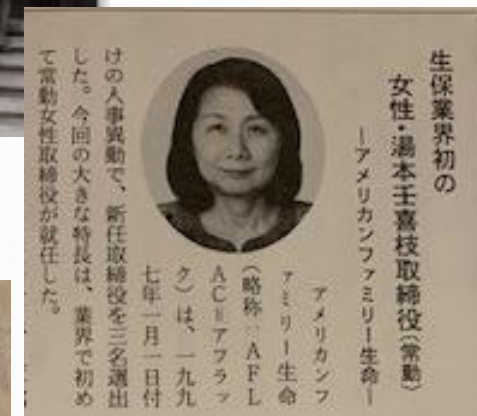 生保業界初の
女性・湯本壬喜枝取締役(常勤)
―アメリカンファミリー生命―
アメリカンフ
ァミリー生命
(略称=AFL
AC=アフラッ
ク)は、一九九
七年一月一日付
けの人事異動で、新任取締役を三名選出
した。今回の大きな特長は、業界で初め
て常勤女性取締役が就任した。